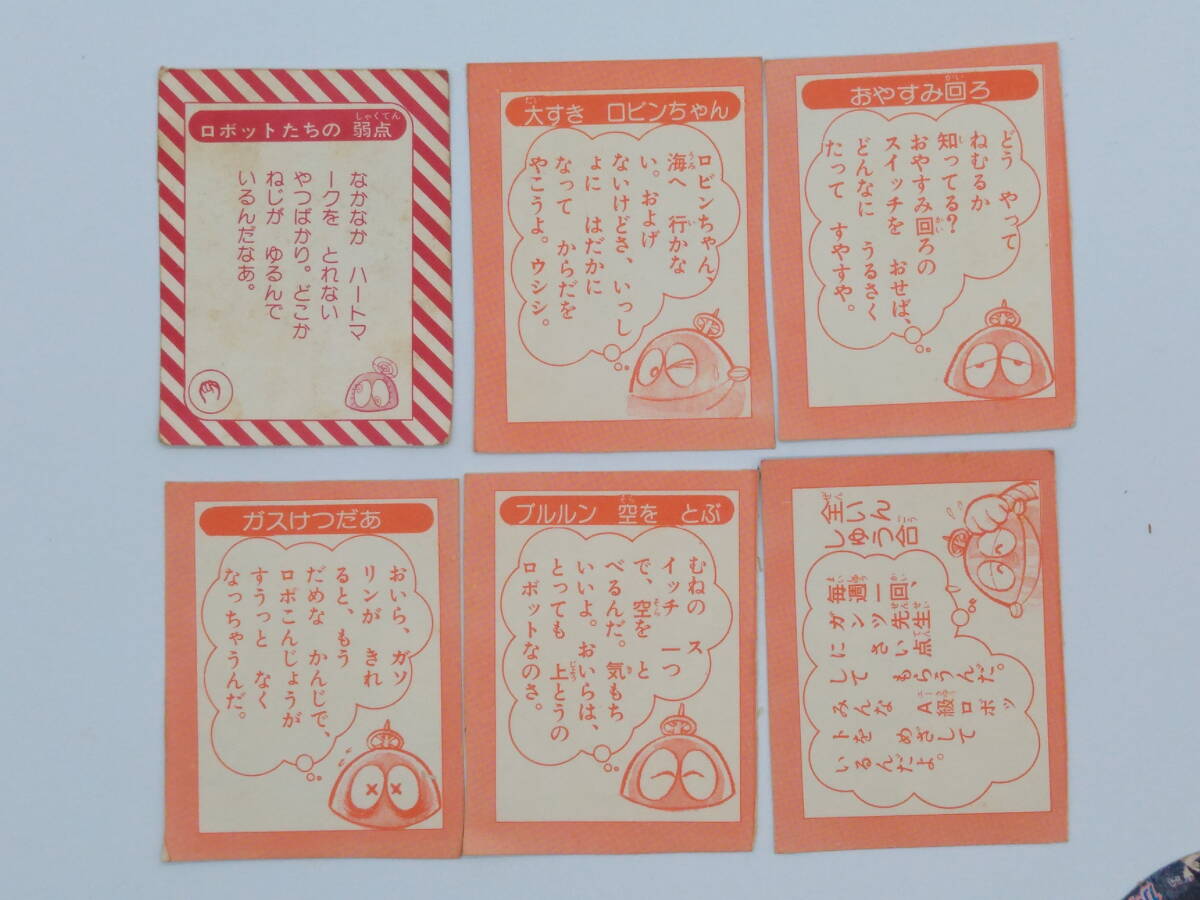 ロボットたちの 弱点
なかなか ハートマ
ークを とれない
やつばかり。どこか
ねじが ゆるんで
いるんだなあ。
大すき ロビンちゃん
ロビンちゃん、
海へ 行かな
い。およげ
ないけどさ、いっし
ょに はだかに
なって からだを
やこうよ。ウシシ。
おやすみ回ろ
どう やって
ねむるか
知ってる?
おやすみ回ろの
スイッチを おせば、
どんなに うるさく
たって すやすや。
ガスけつだあ
おいら、ガソ
リンが きれ
ると、もう
だめな かんじで、
ロボこんじょうが
すうっと なく
なっちゃうんだ。
ブルルン 空を とぶ
むねの ス
イッチ 一つ
で、空を と
べるんだ。気もち
いいよ。おいらは、
とっても 上とうの
ロボットなのさ。
全いん
しゅう合
毎週一回、
ガンツ先生
に さい点
して もらうんだ。
みんな A級ロボッ
トを めざして
いるんだよ。